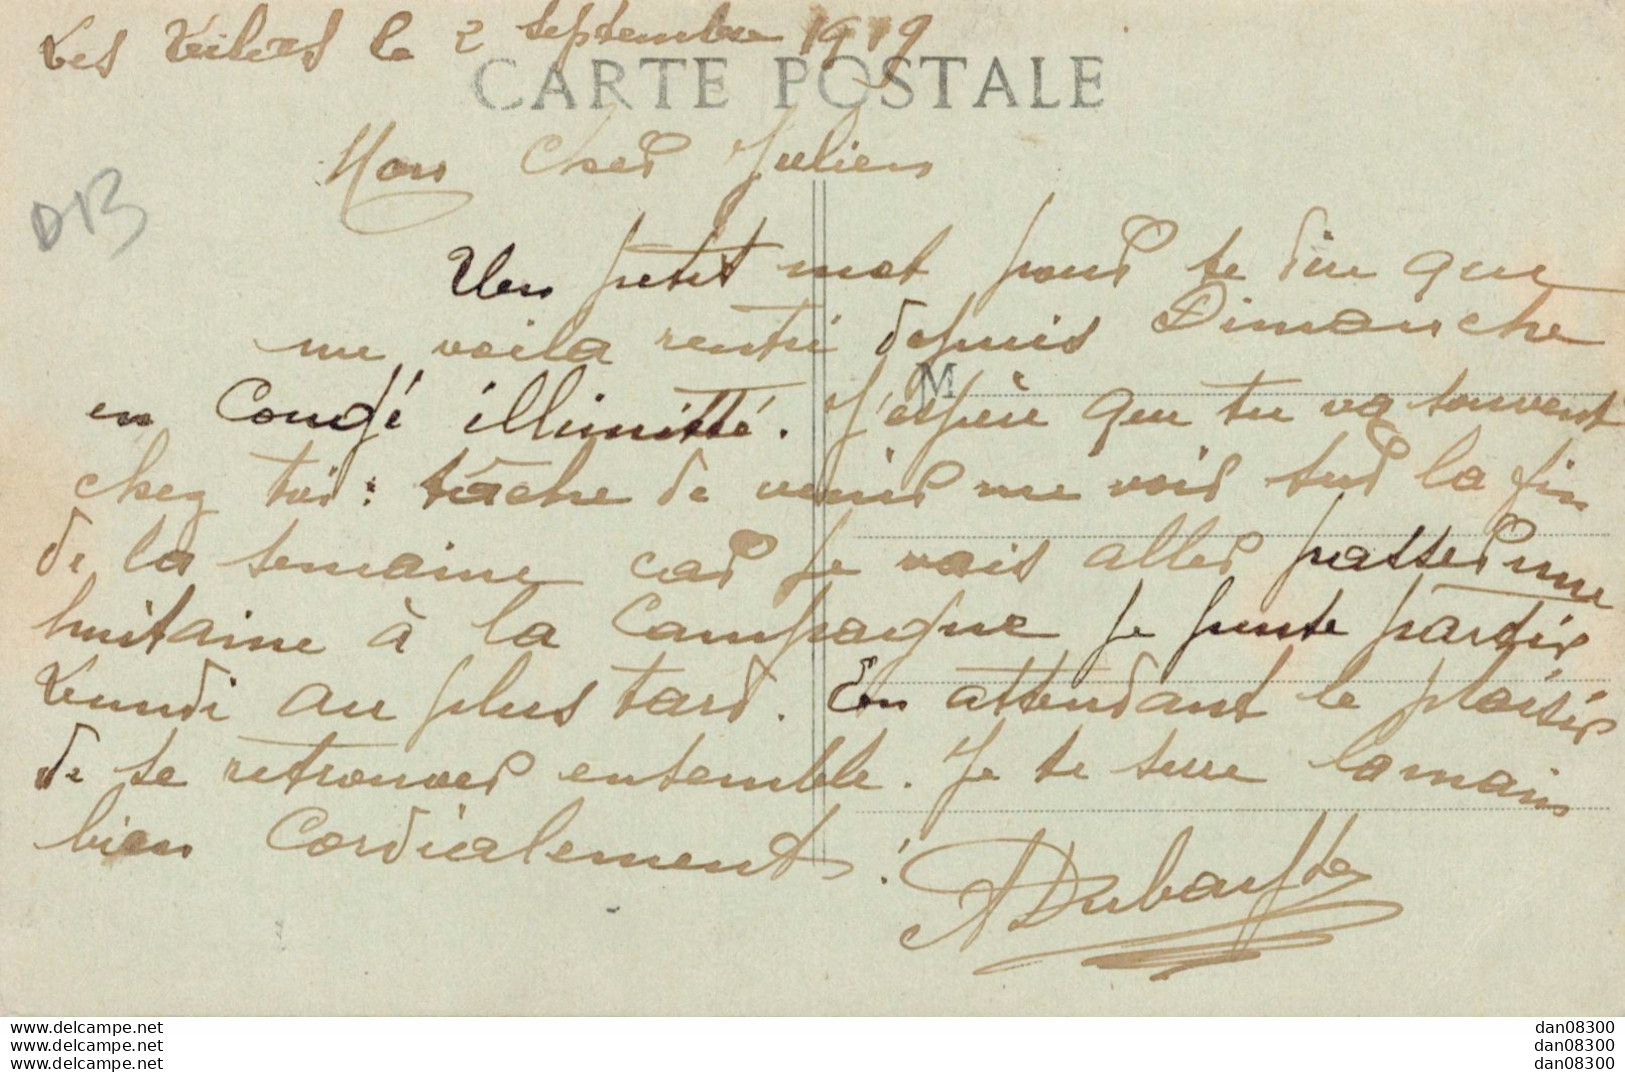 Les le 2 septembre 1919
CARTE POSTALE
Mon Cher Julien
DB
Un petit mot pour te dire que
me voila rentré depuis Dimanche
M
en Congé illimitté. J'espère que tu va souvent
chez toi : tâche de venir me voir sur la fin
de la semaine car je vais aller passer une
huitaine à la Campagne je pense partir
Lundi au plus tard. En attendant le plaisir
de se retrouver ensemble. Je te serre la main
bien Cordialement !
www.delcampe.net
www.delcampe.net
www.delcampe.net
dan08300
dan08300
dan08300